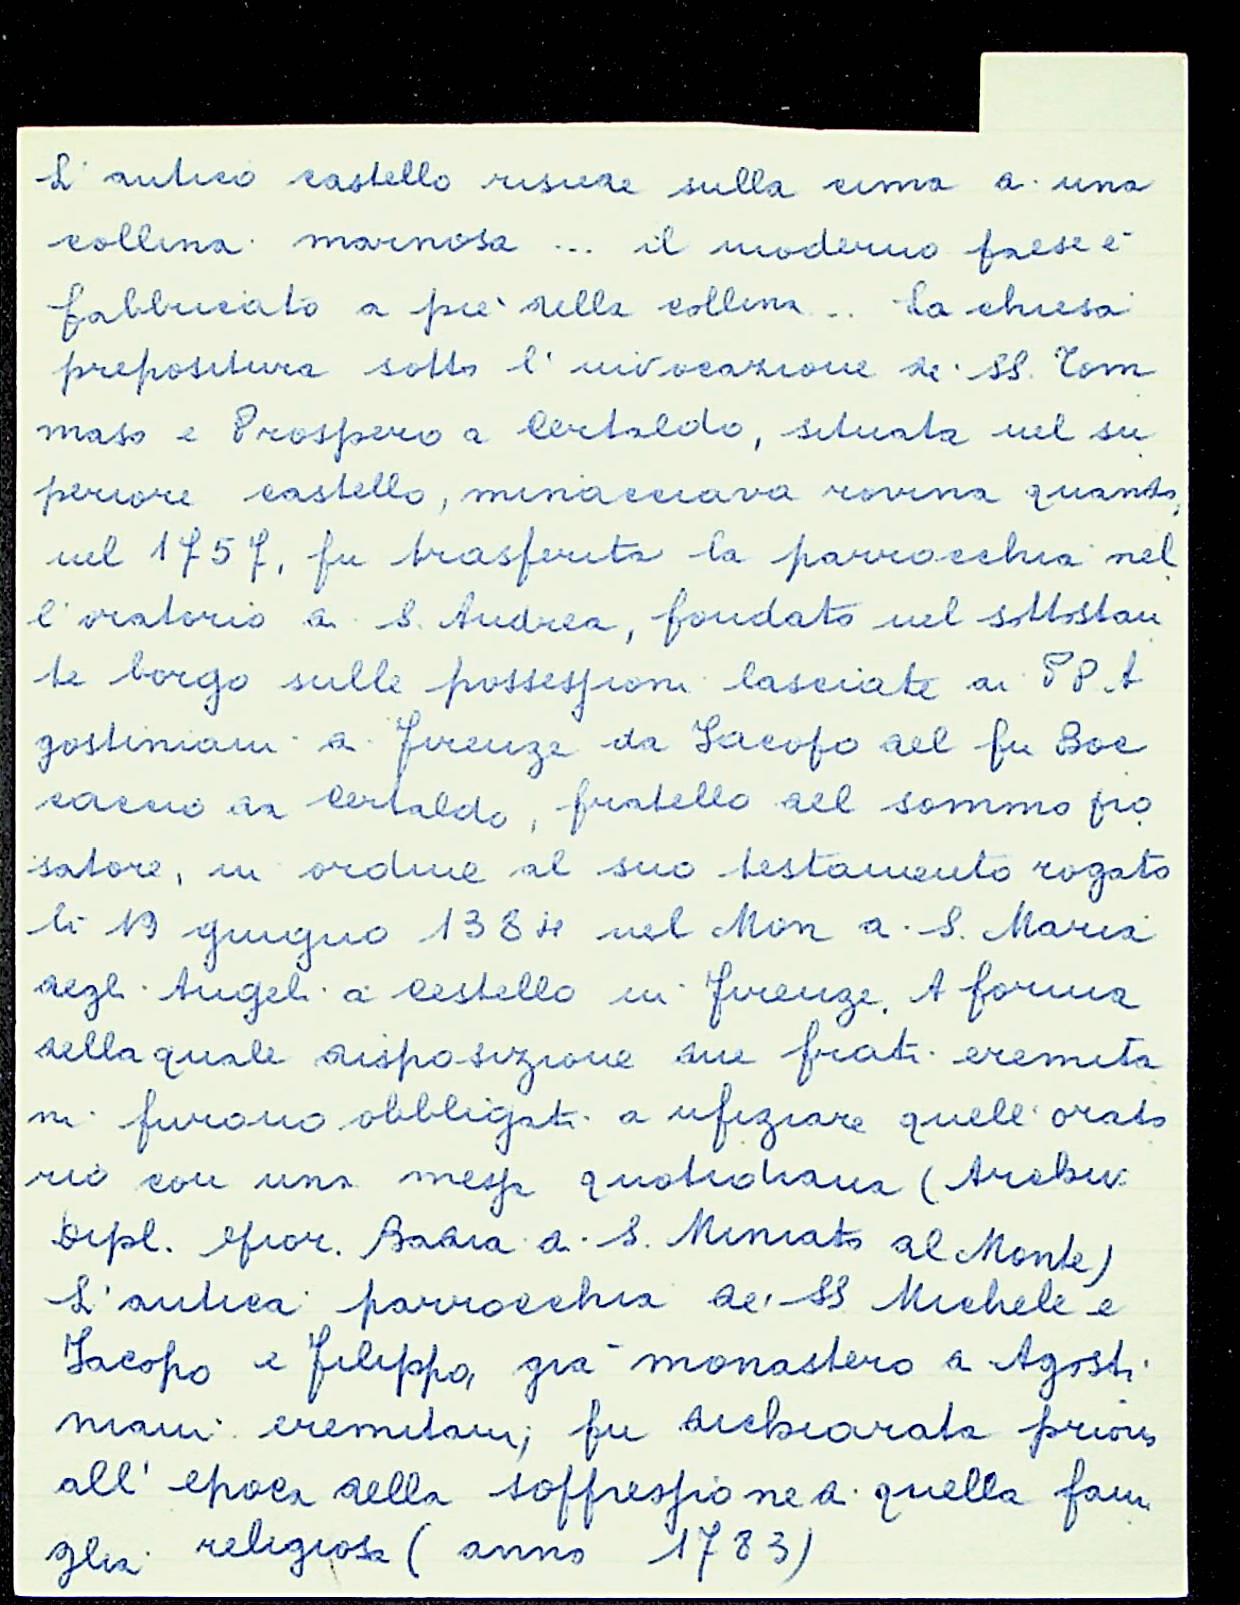 L'antico castello risiede sulla cima di una
collina marnosa ... il moderno paese è
fabbricato a piè della collina ... La chiesa
prepositura sotto l'invocazione de' SS. Tom
maso e Prospero a Certaldo, situata nel su
periore castello, minacciava rovina quando,
nel 1757, fu trasferita la parrocchia nel
l'oratorio di S. Andrea, fondato nel sottostan
te borgo sulle possessioni lasciate ai PP. A
gostiniani di Firenze da Iacopo del fu Boc
caccio da Certaldo, fratello del sommo pro
satore, in ordine al suo testamento rogato
lì 19 giugno 1384 nel Mon di S. Maria
degli Angeli di Cestello in Firenze. A forma
della quale disposizione due frati eremita
ni furono obbligati a ufiziare quell'orato
rio con una messa quotidiana (Archiv.
Dipl. fior. Badia di S. Miniato al Monte)
L'antica parrocchia de' SS Michele e
Iacopo e Filippo, già monastero di Agosti
niani eremitani, fu dichiarata prioria
all'epoca della soppressione di quella fami
glia religiosa (anno 1783)